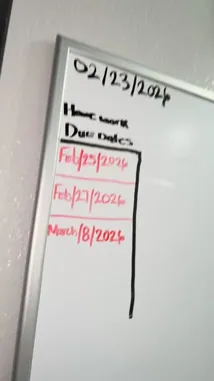 02/23/2026
Home work
Due Dates
Feb/25/2026
Feb/27/2026
March/8/2026